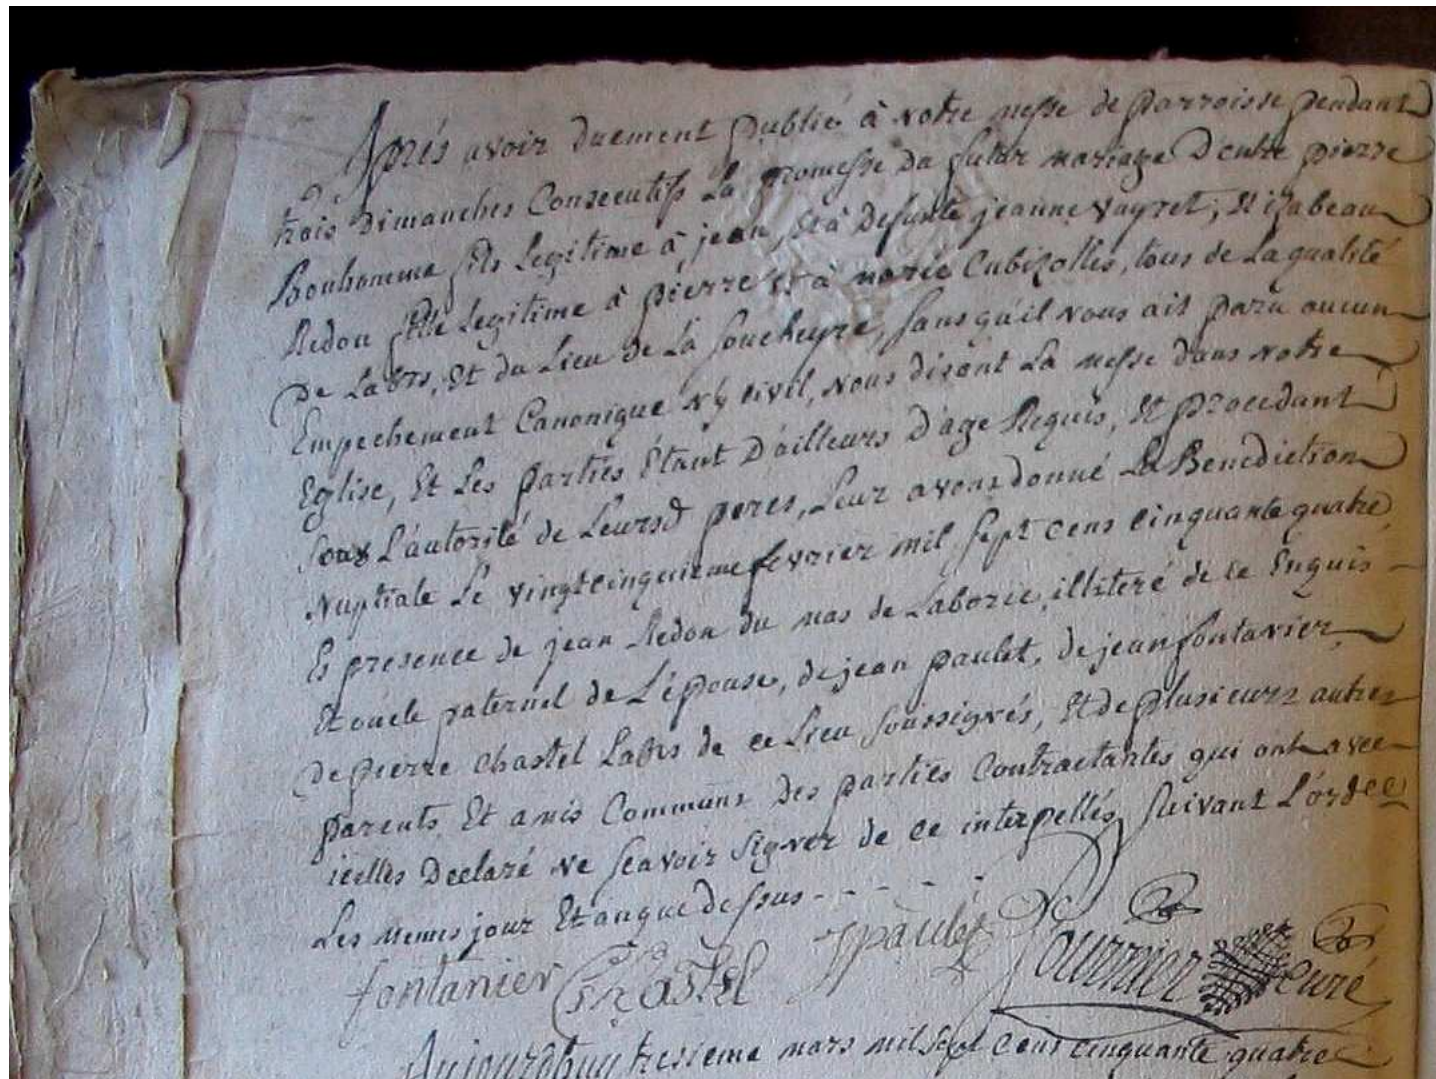 Aprés avoir duement publié à notre messe de parroisse pendant
trois dimanches Consecutifs La promesse du futur mariage D'entre pierre
Bonhomme fils Legitime à jean, et à defunte jeanne vayret, et izabeau
Redon fille Legitime à pierre et à marie Cubizolles, tous de La qualité
de Labrs, Et du Lieu de La Soucheyre, sans qu'il nous ait paru aucun
Empechement Canonique n'y civil, nous disont La messe dans notre
Eglise, Et Les parties Étant D'ailleurs D'age Requis, et procedant
sous L'autorité de Leursd peres, Leur avons donné La Benediction
Nuptiale Le vingtcinquieme fevrier mil sept cens cinquante quatre,
Es presence de jean Redon du mas de Laborie, illiteré de ce Enquis
Et oncle paternel de L'épouse, de jean paulet, de jean fontanier,
de pierre chastel Labrs de ce Lieu soussignés, Et de plusieurs autres
parents Et amis Communs des parties Contractantes qui ont avec
icelles Declaré ne sçavoir signer de ce interpellés suivant L'ordce
Les memes jour Et an que dessus - - - - -
fontanier Chastel Jpaulet Fournier curé
Aujourdhuy tresieme mars mil sept cens cinquante quatre